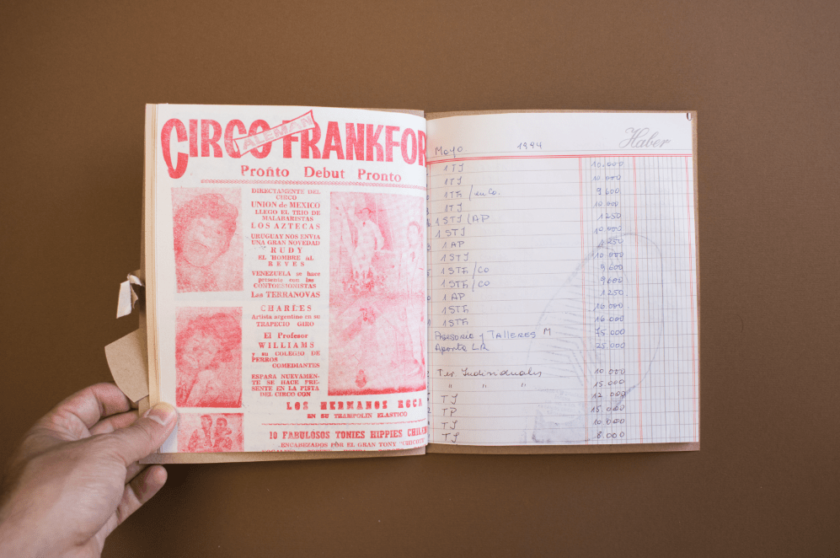 CIRCO FRANKFOR
ALEMAN
Pronto Debut Pronto
DIRECTAMENTE DEL
CIRCO
UNION de MEXICO
LLEGO EL TRIO DE
MALABARISTAS
LOS AZTECAS
URUGUAY NOS ENVIA
UNA GRAN NOVEDAD
RUDY
EL HOMBRE AL
REVES
VENEZUELA se hace
presente con los
CONTORSIONISTAS
Los TERRANOVAS
CHARLES
Artista argentino en su
TRAPECIO GIRO
El Profesor
WILLIAMS
y su COLEGIO DE
PERROS
COMEDIANTES
ESPAÑA NUEVAMEN-
TE SE HACE PRE-
SENTE EN LA PISTA
DEL CIRCO CON
LOS HERMANOS ROCA
EN SU TRAMPOLIN ELASTICO
10 FABULOSOS TONIES HIPPIES CHILE
ENCABEZADOS POR EL GRAN TONY
Haber
Mayo 1994
1TJ 10.000
1TJ 10.000
9.600
1TJ 10.000
1STJ/AP 1250
1STJ 10.000
1AP
1STJ 10.000
1STE/CO 9.600
1STE/CO 9.600
1AP 1250
1STE 10.000
1STE 10.000
y Talleres M 75.000
25.000
Individuales 10.000
" " " 15.000
TJ 12.000
TP 15.000
TJ 10.000
TJ 8.000